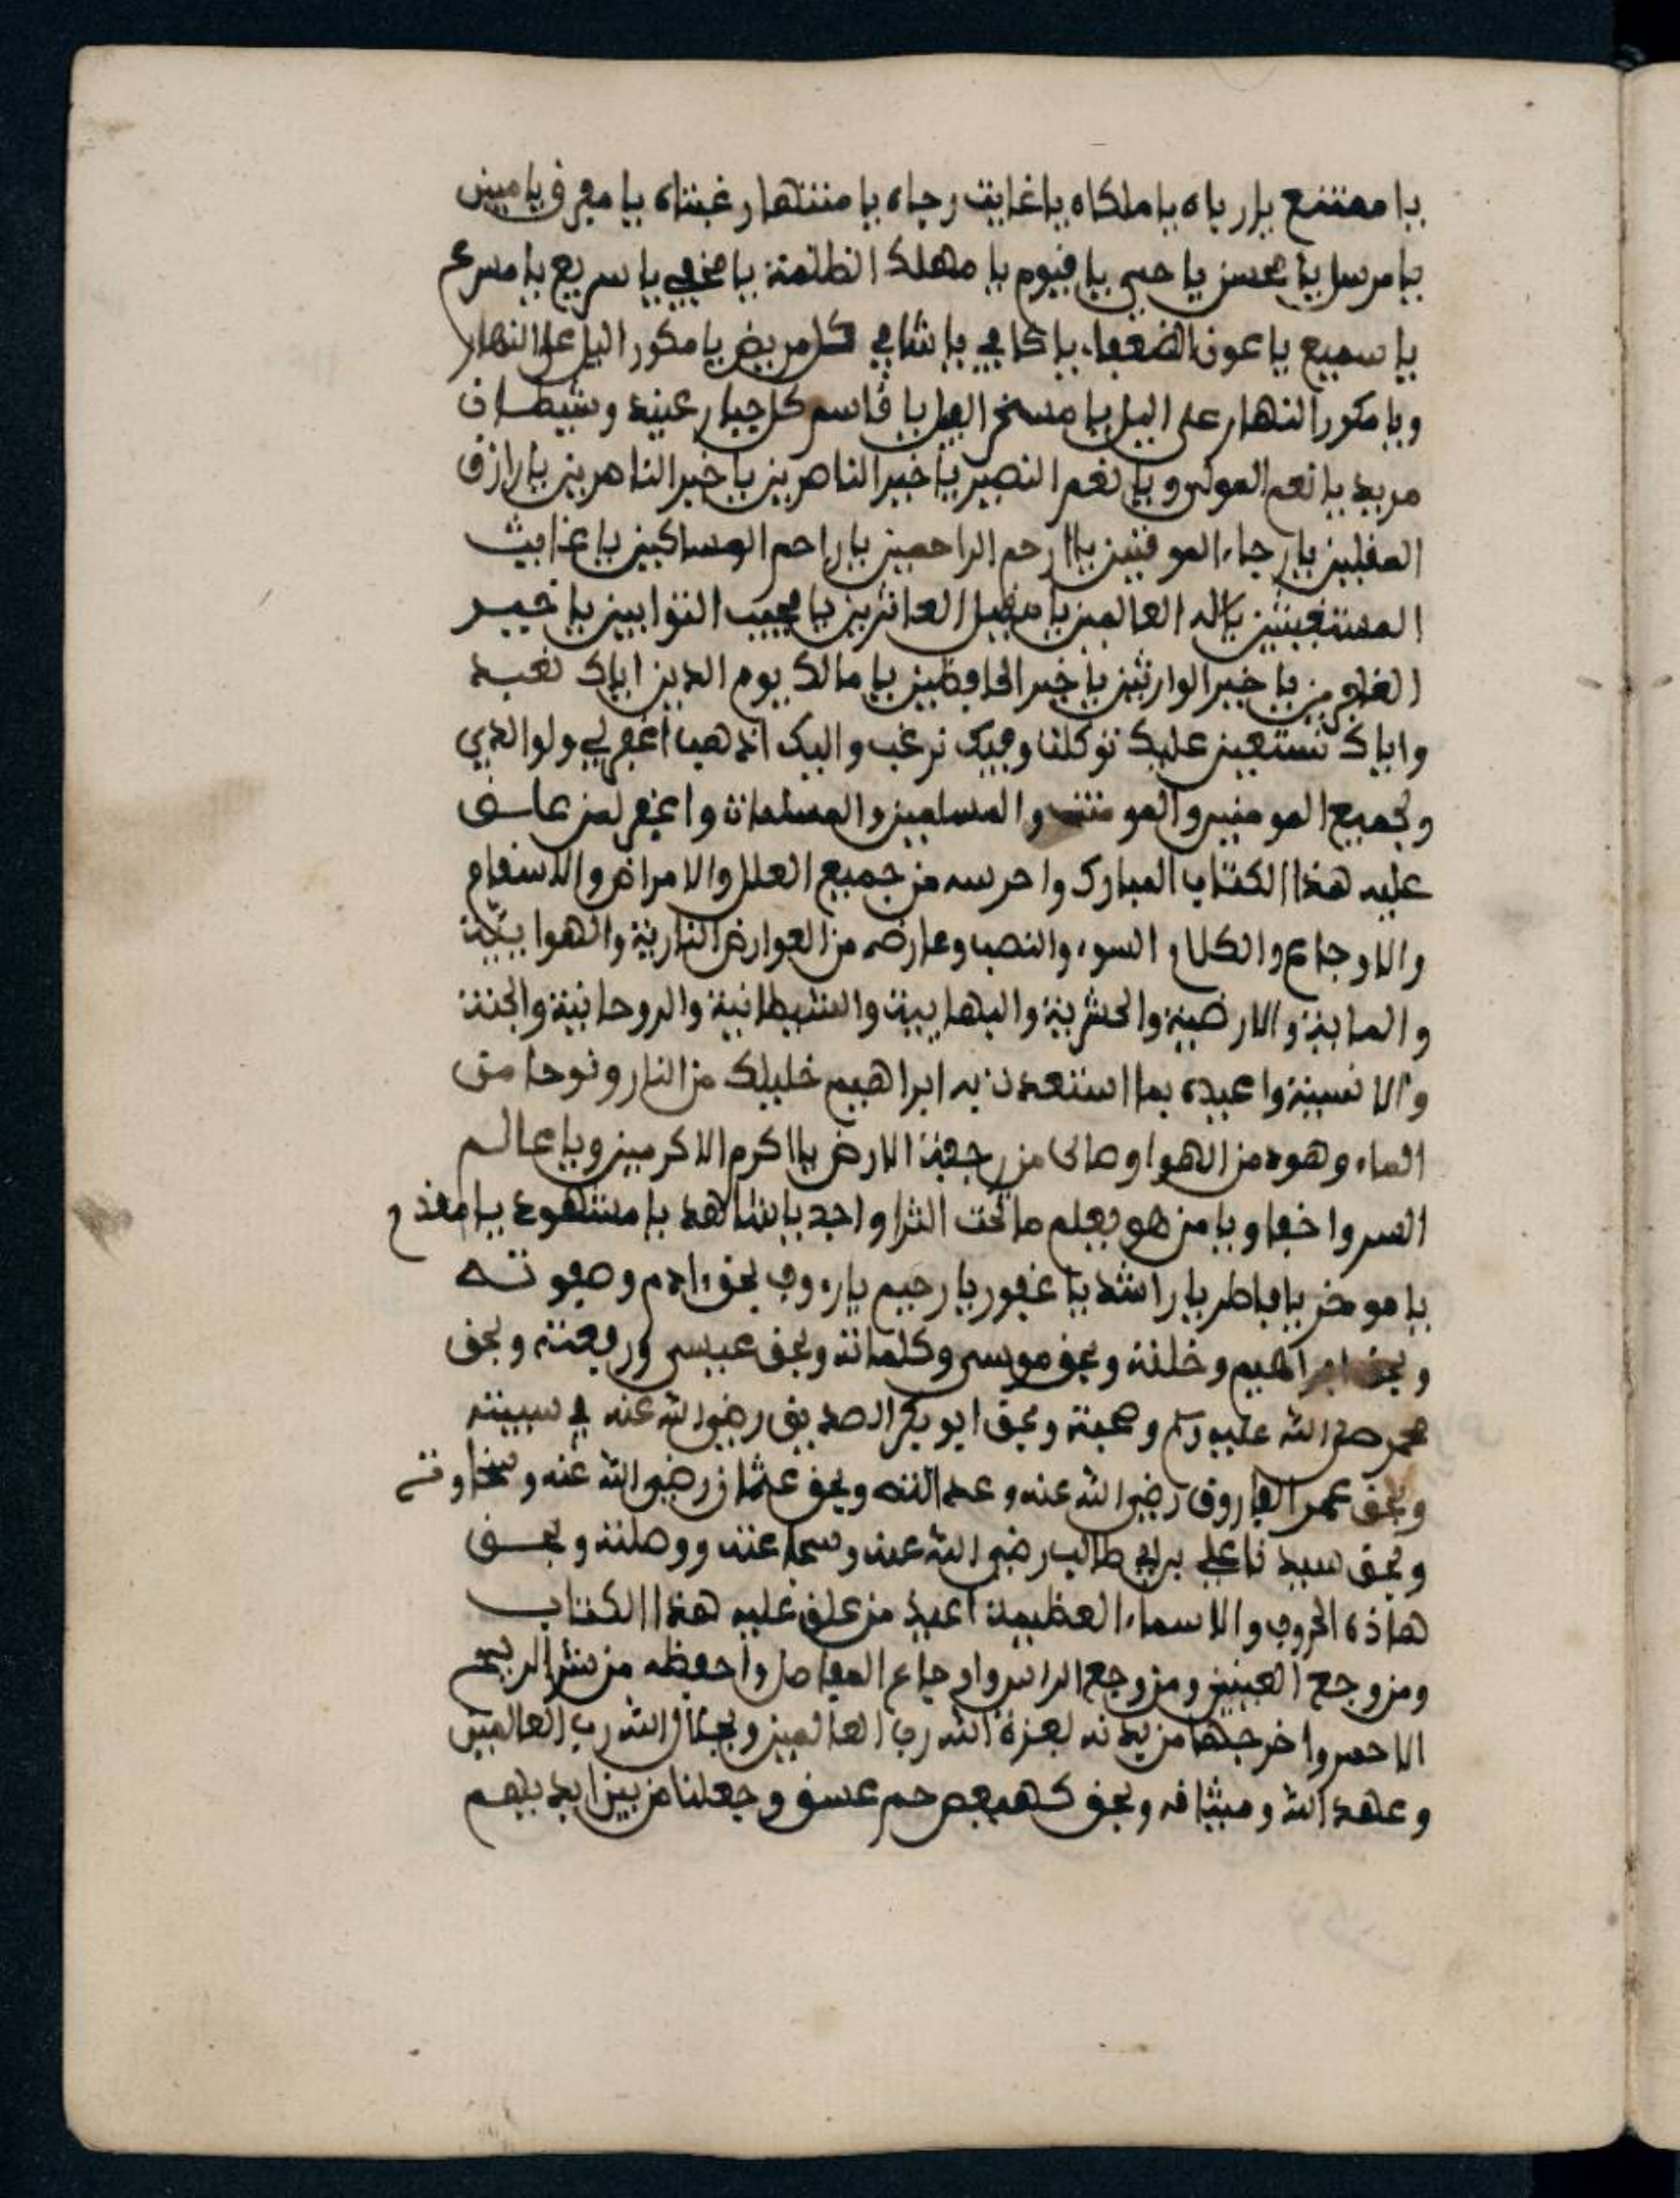 يا ممتنع يارباه يا ملكاه يا غايت رجاه يا منتهارغبتاه يا مفرق يا مبين
يا مرسل يا محسن يا حي يا قيوم يا مهلك الظلمة يا مخفي يا سريع يا مسرع
يا سميع يا عون الضعفاء يا كافي يا شافي كل مريض يا مكور اليل على النهار
ويا مكور النهار على اليل يا مسخر الفلك يا قاسم كل جبار عنيد وشيطان
مريد يا نعم المولى ويا نعم النصير يا خير الناصرين يا خير الناصرين يا رازق
المقلين يا رجاء الموقنين يا ارحم الراحمين يا راحم المساكين يا غايث
المستغيثين يا اله العالمين يا مقيل العاثرين يا مجيب التوابين يا خيـر
الغافرين يا خير الوارثين يا خير الحافظين يا مالك يوم الدين اياك نعبد
واياك نستعين عليك توكلنا وفيك نرغب واليك انذهب اغفر لي ولوالدي
ولجميع المومنين والمومنت والمسلمين والمسلمات واغفر لمن علـق
عليه هذا الكتاب المبارك واحرسه من جميع العلل والامراض والاسقام
والاوجاع والكلام السوء والنصب وعارضه من العوارض النارية والهوايية
والمايية والارضية والحشرية والبهايية والشيطانية والروحانية والجنية
والانسية واعيده بما استعدت به ابراهيم خليلك من النار ونوحا من
الماء وهود من الهوا وصالح من رجفة الارض يا اكرم الاكرمين ويا عالـم
السر واخفا ويا من هو يعلم ما تحت الثرا واجد يا شاهد يا مشهود يا مقدم
يا موخر يا فاطر يا راشد يا غفور يا رحيم يا رءوف بحق ءادم وصفوتـه
وبحق ابراهيم وخلته وبحق موسى وكلماته وبحق عيسى ورفعته وبحق
محمد صلى الله عليه وسلم وصحبة وبحق ابو بكر الصديق رضي الله عنه في سبيته
وبحق عمر الفاروق رضي الله عنه وعدالته وبحق عثمان رضي الله عنه وسخاوته
وبحق سيدنا علي بن ابي طالب رضي الله عنه وشجاعته ووصلته وبحـق
هاذه الحروف والاسماء العظيمة اعيذ من علق عليه هذا الكتاب
ومن وجع العينين ومن وجع الراس واوجاع المفاصل واحفظه من شر الريح
الاحمر واخرجها من بدنه لعزة الله رب العالمين وبجلال الله رب العالمين
وعهد الله وميثاقه وبحق كهيعص حم عسق وجعلنا من بين ايديهم